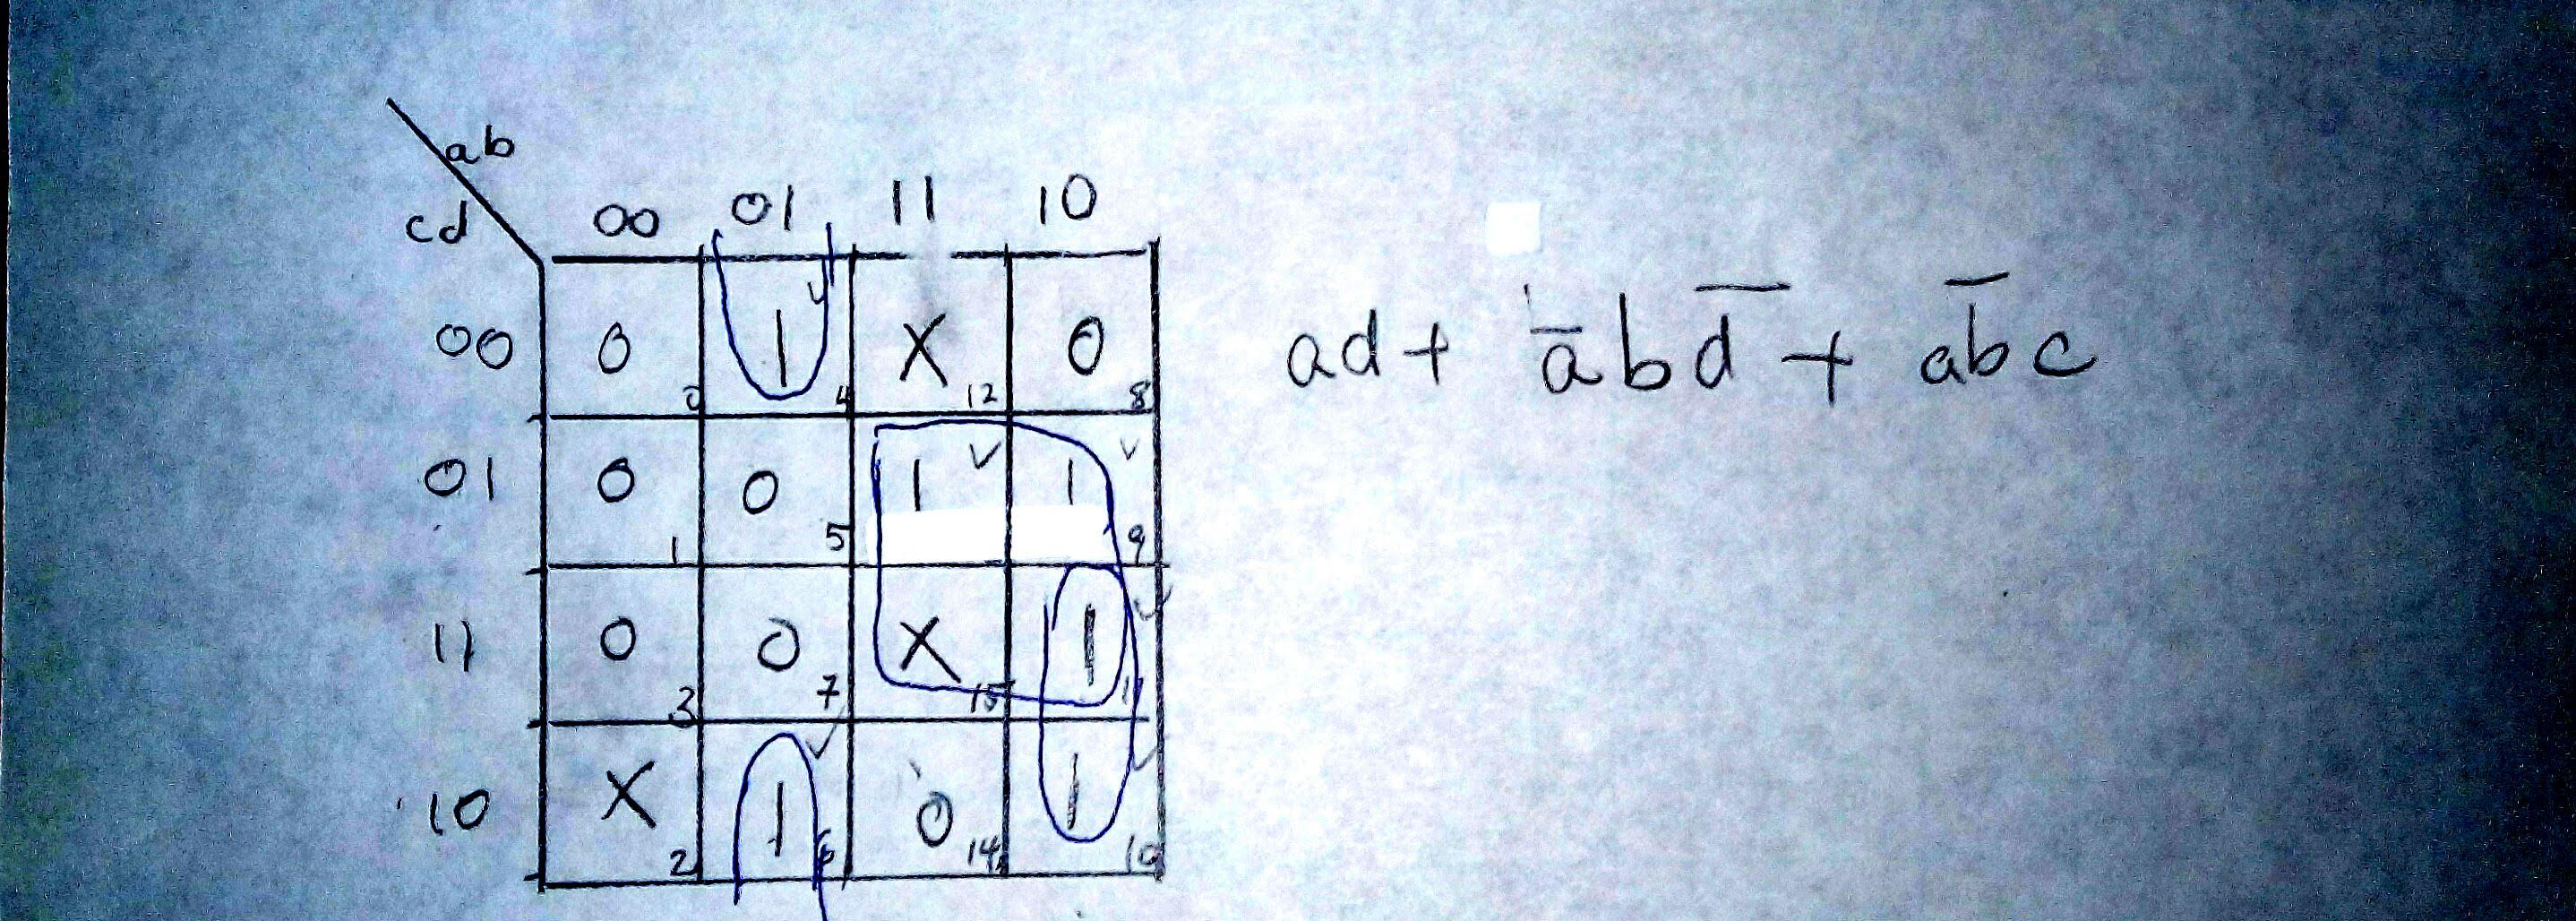 ab
cd
00 01 11 10
00 0 0 1 4 X 12 0 8
01 0 1 0 5 1 1 9
11 0 3 0 7 X 15 1 11
10 X 2 1 6 0 14 1 10
ad + a̅bd̅ + ab̅c